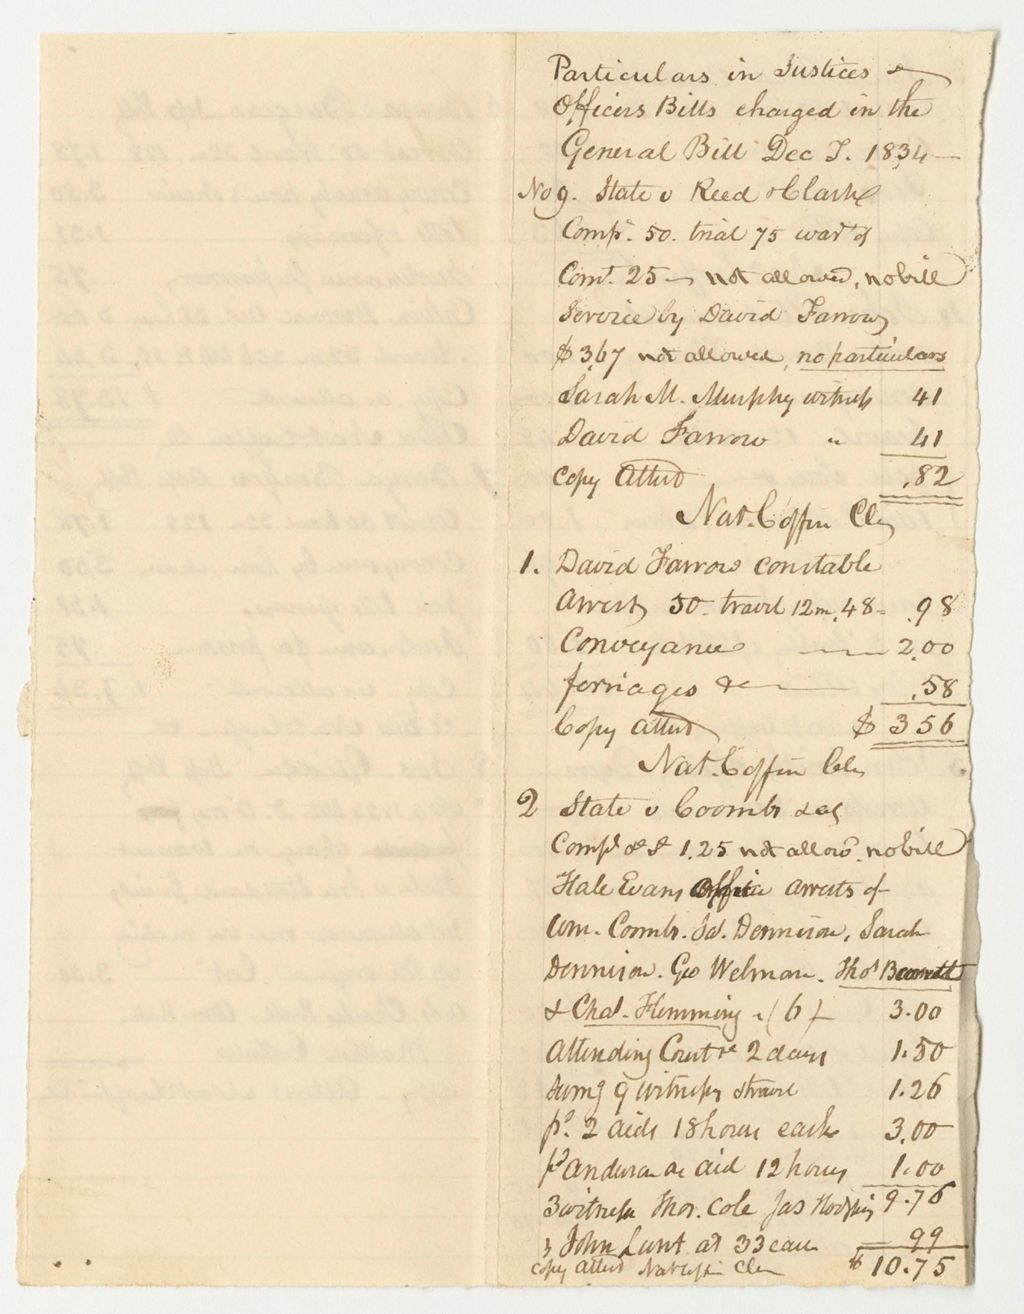 Particulars in Justices &
Officers Bills charged in the
General Bill Dec T. 1834 —
No 9. State v Reed & Clark
Compt. 50. trial 75 wart of
Comt. 25 — not allowed, no bill
Service by David Farrow
$3,67 not allowed, no particulars
Sarah M. Murphy witness 41
David Farrow " 41
Copy Attest ,82
Nat. Coffin Clk
1. David Farrow constable
Arrest 50. travel 12m. 48 = .98
Conveyance —— 2,00
ferriages &c —— ,58
Copy Attest $ 3 56
Nat. Coffin Clk
2 State v Coombs & als
Compt &c 1,25 not allowd. no bill
Hale Evans arrests of
Wm. Coombs. Jd. Dennison, Sarah
Dennison. Geo Welman. Thos
& Chas. Flemming - (6) — 3.00
Attending Court 2 days 1.50
Sumg 9 witnesses & travel 1.26
pd. 2 aids 18 hours each 3,00
pd Anderson as aid 12 hours 1.00
3 witness Thos. Cole Jas Hodgkins 9.76
& John Lunt at 33 each 99
Copy Attest Nat Coffin Clk $ 10.75